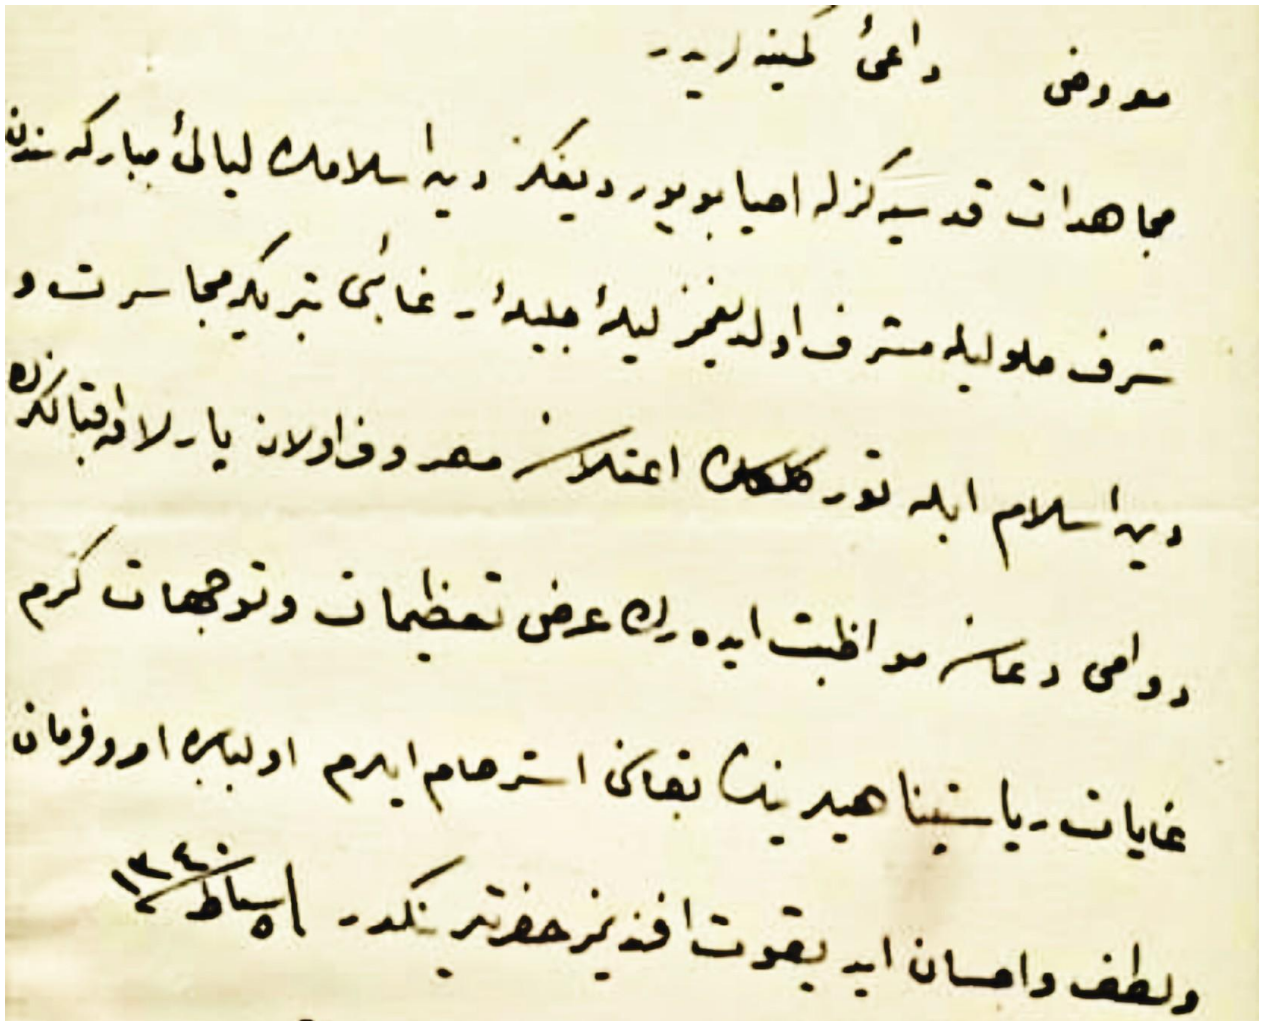 معروض داعئ كمینه لریدر
مجاهدات قدسیه كزله احیا بویوردیغكز دین اسلامك لیالئ مباركه سندن
شرف حلولیله مشرف اولدیغمز لیلهٔ جلیلهٔ رغائبی تبریكه مجاسرت و
دین اسلام ایله تورككلك اعتلاسنه مصروف اولان پارلاق اقبالكزك
دوامی دعاسنه مواظبت ایده رك عرض تعظیمات وتوجهات كرم
غایات ریاستپناهیلرینك بقاسنی استرحام ایلرم اولبابده امر وفرمان
ولطف واحسان ایدیقوت افندیمز حضرتلرینكدر ١٣٤٠